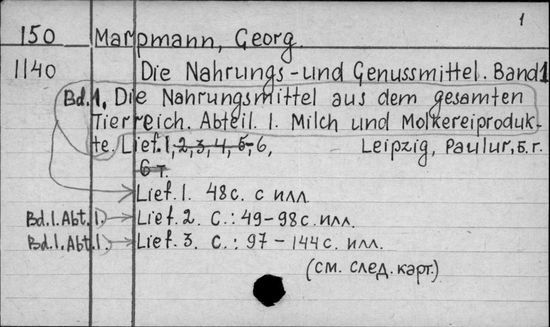 1
150 Marpmann, Georg.
1140 Die Nahrungs-und Genussmittel. Band 1
Bd.1, Die Nahrungsmittel aus dem gesamten
Tierreich. Abteil. 1. Milch und Molkereiproduk-
te, Lief. 1, 2, 3, 4, 5, 6, Leipzig, Paulur, б. г.
6 т.
Lief. 1. 48 с. с илл.
Bd.1.Abt.1) Lief. 2. С.: 49-98 с. илл.
Bd.1.Abt.1) Lief. 3. С.: 97-144 с. илл.
(см. след. карт.)